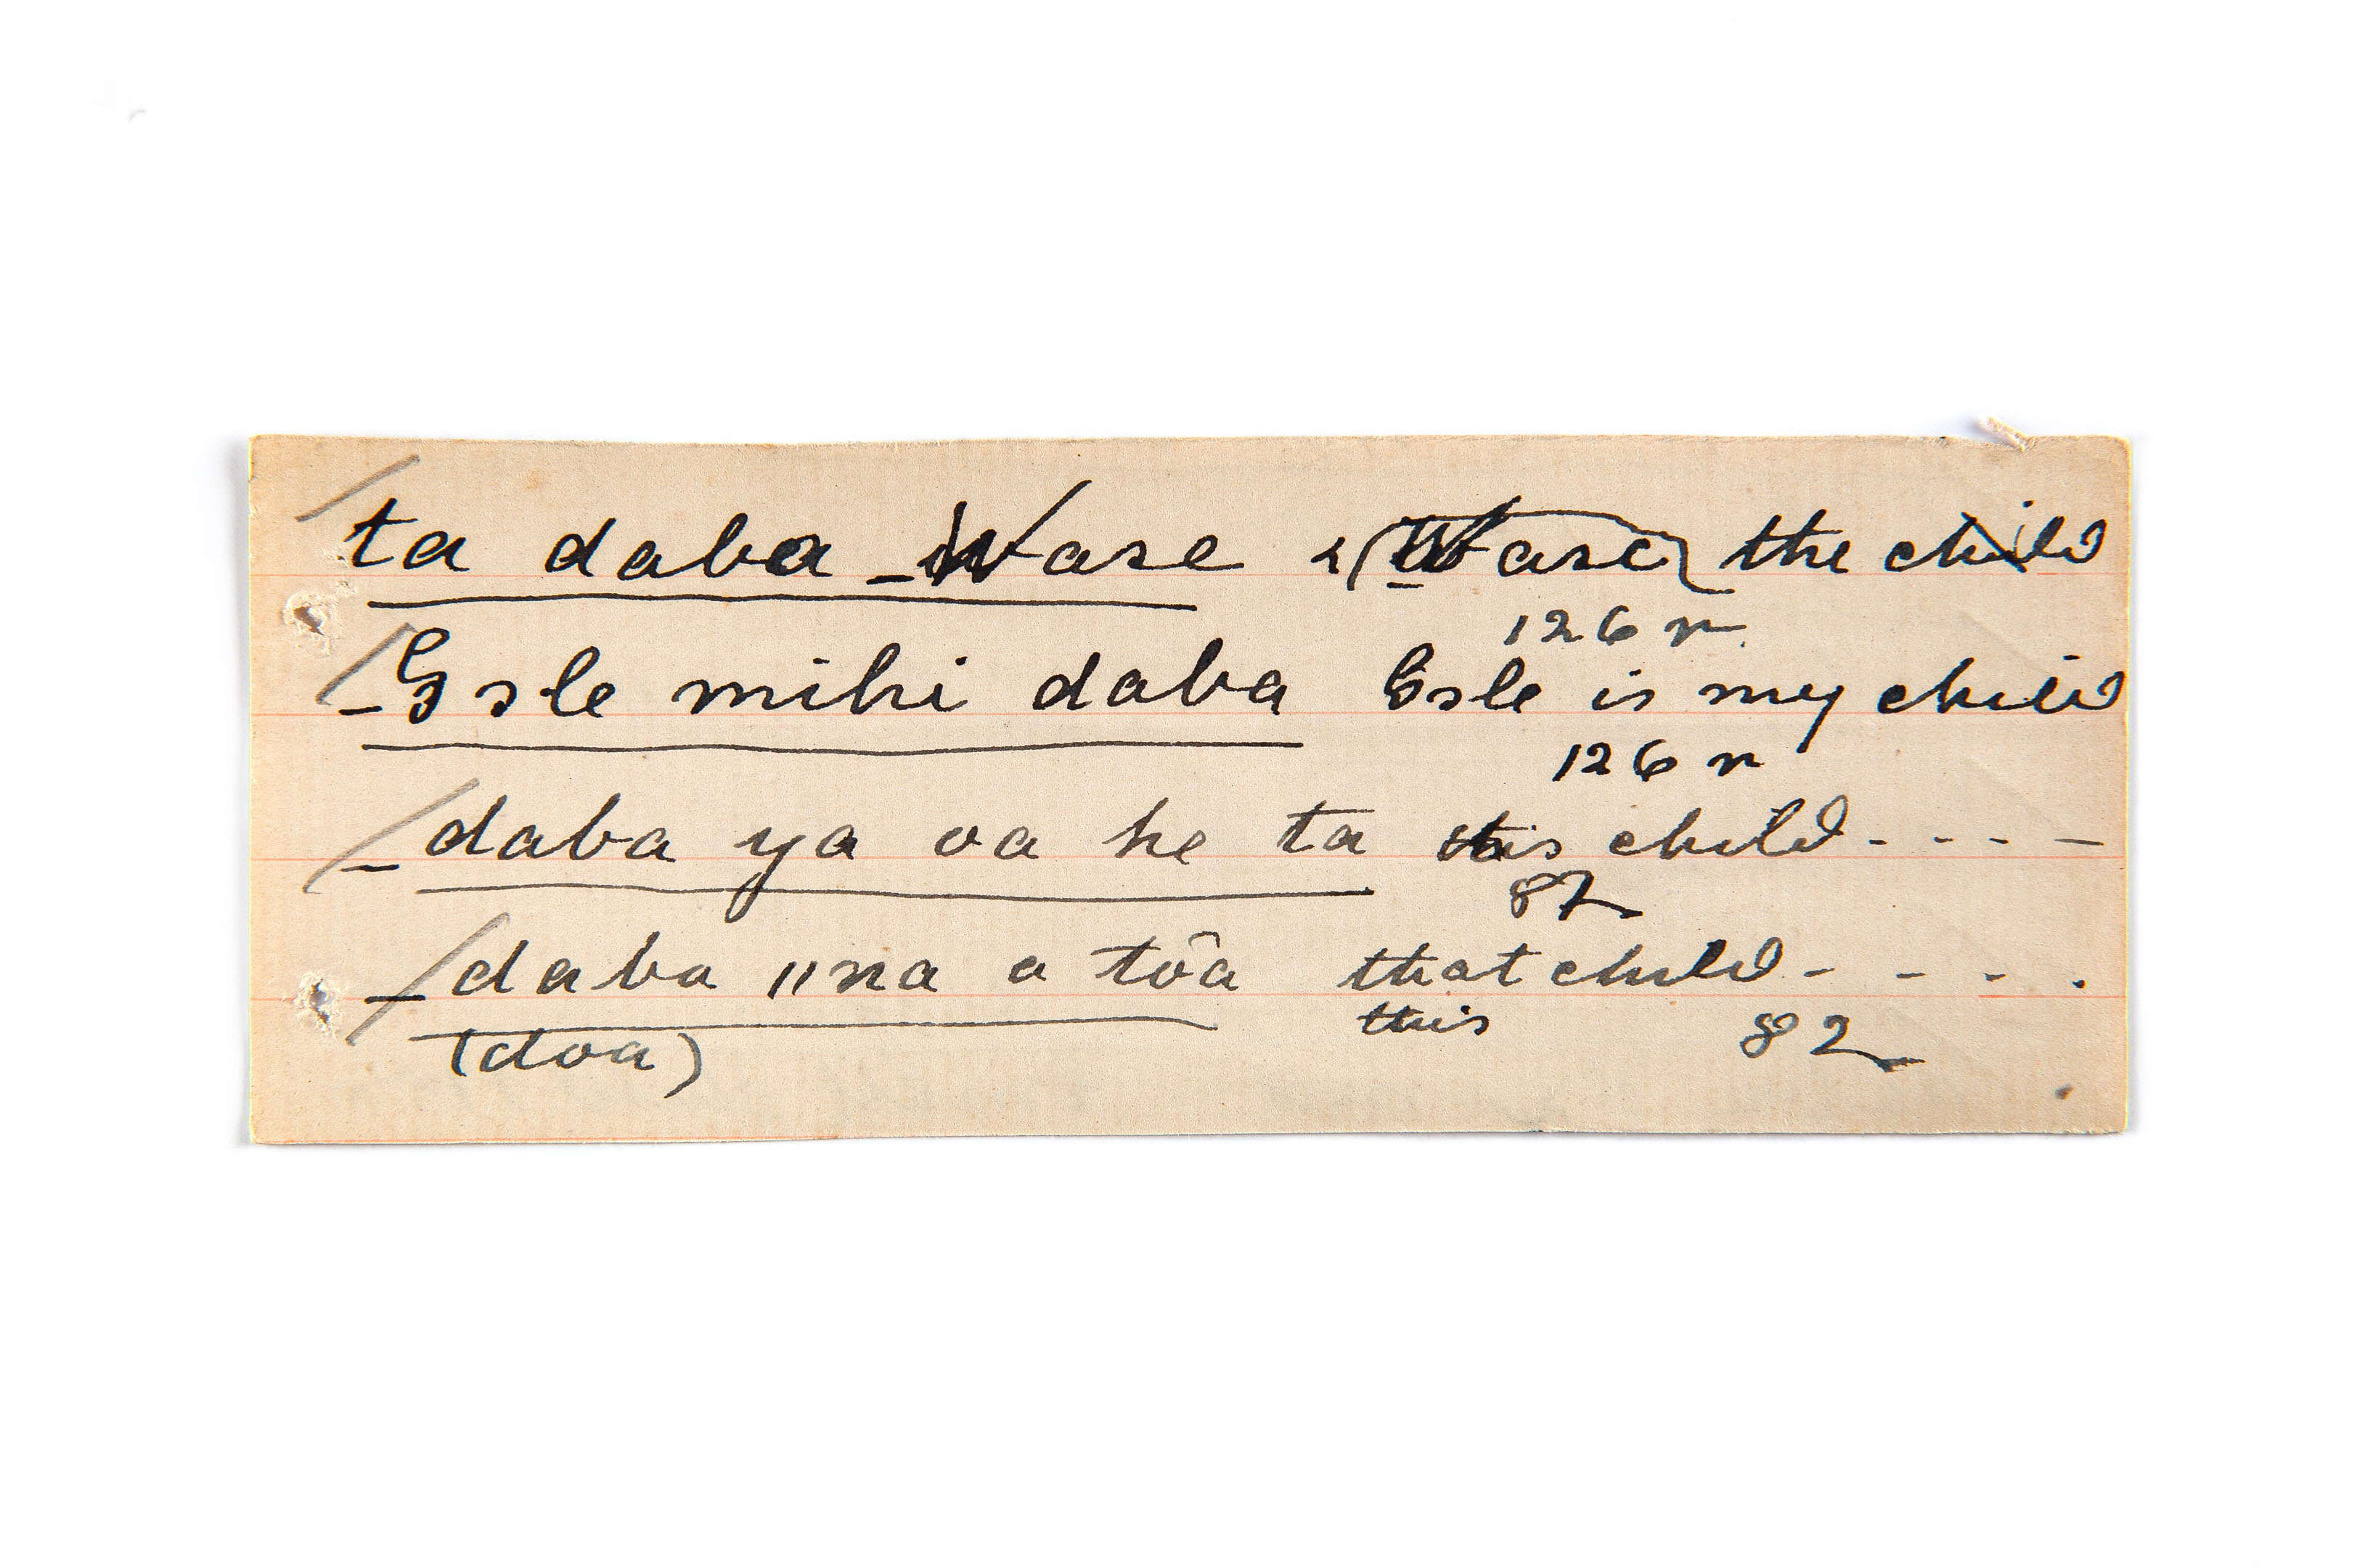 ta daba _Wase (Wase) the child
126 r
_Gsle mihi daba Gsle is my child
126 r
_daba ya oa he ta this child - - - -
82
_daba ǁna a tôa that child - - - .
(doa) this 82